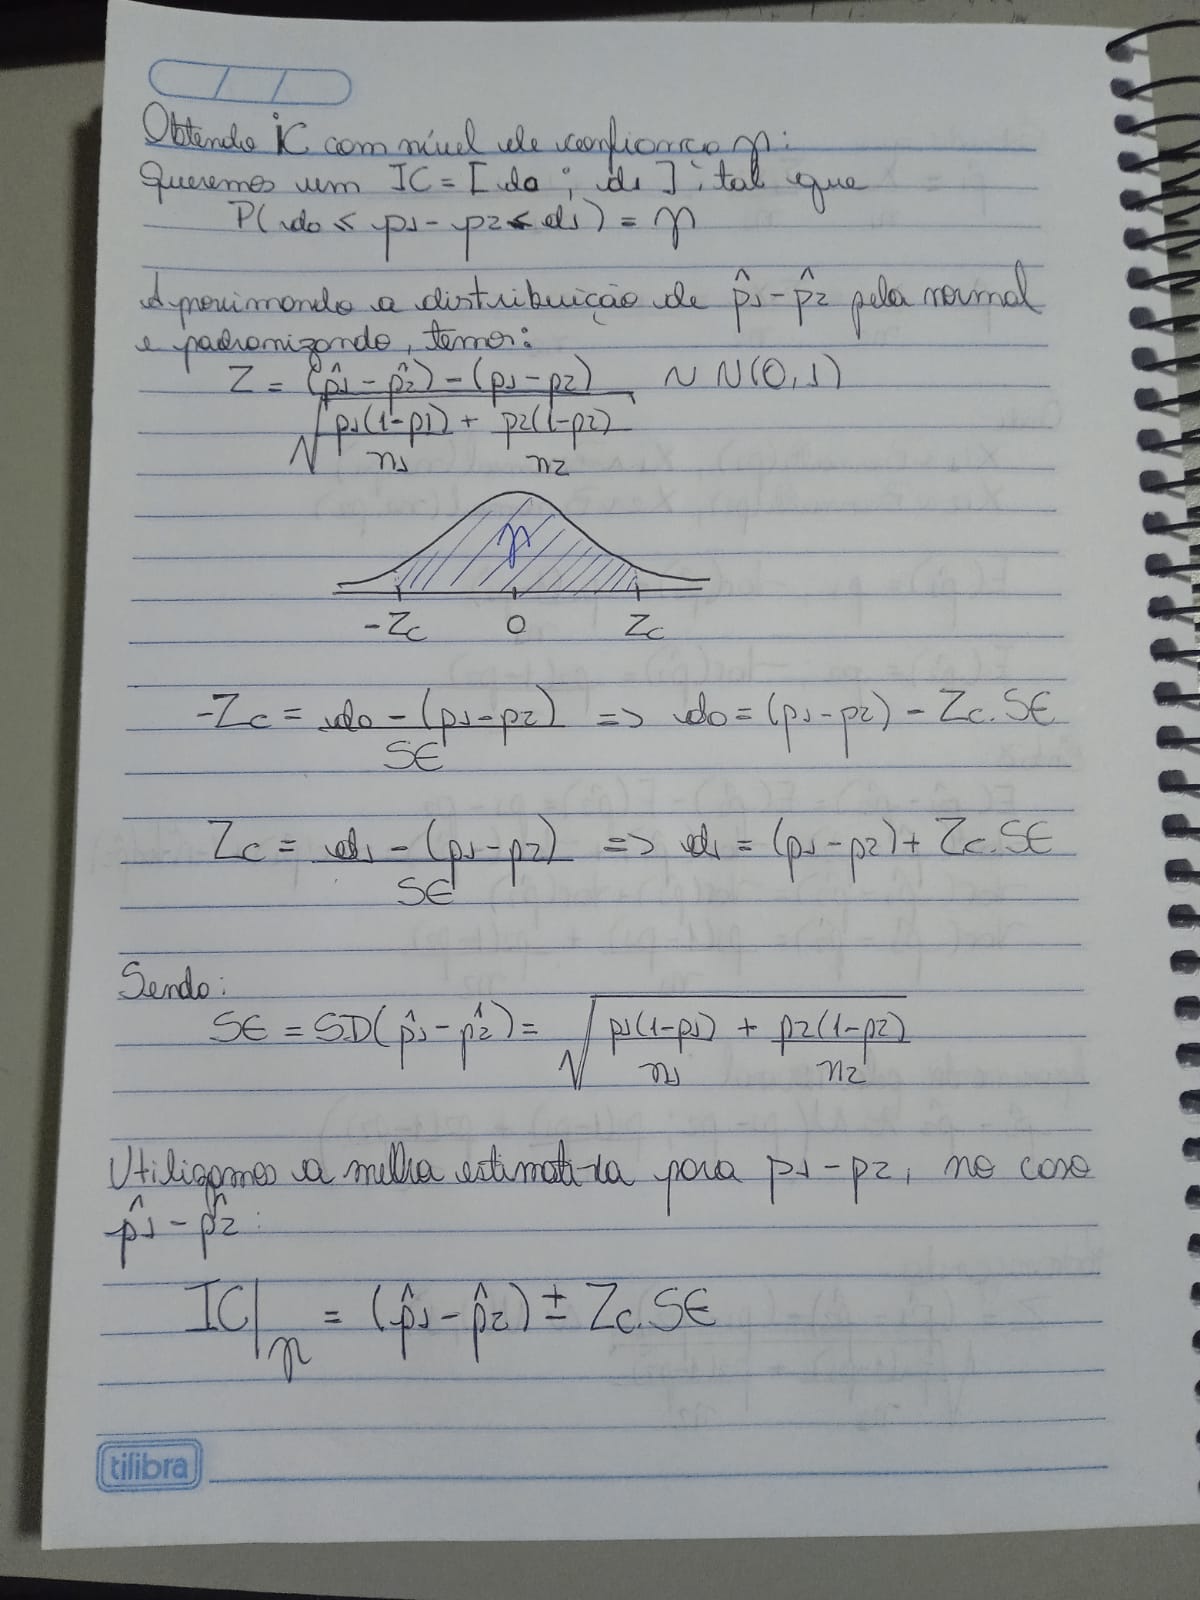 Obtendo IC com nível de confiança γ:
Queremos um IC = [do ; d1] ; tal que
P(do ≤ p1 - p2 ≤ d1) = γ
Aproximando a distribuição de p̂1 - p̂2 pela normal
e padronizando, temos:
Z = (p̂1 - p̂2) - (p1 - p2) ~ N(0,1)
√ p1(1-p1) + p2(1-p2)
n1 n2
γ
-Zc 0 Zc
-Zc = do - (p1-p2) => do = (p1-p2) - Zc.SE
SE
Zc = d1 - (p1-p2) => d1 = (p1-p2) + Zc.SE
SE
Sendo:
SE = SD(p̂1 - p̂2) = √ p1(1-p1) + p2(1-p2)
n1 n2
Utilizamos a melhor estimativa para p1-p2, no caso
p̂1 - p̂2:
IC|γ = (p̂1 - p̂2) ± Zc.SE
tilibra